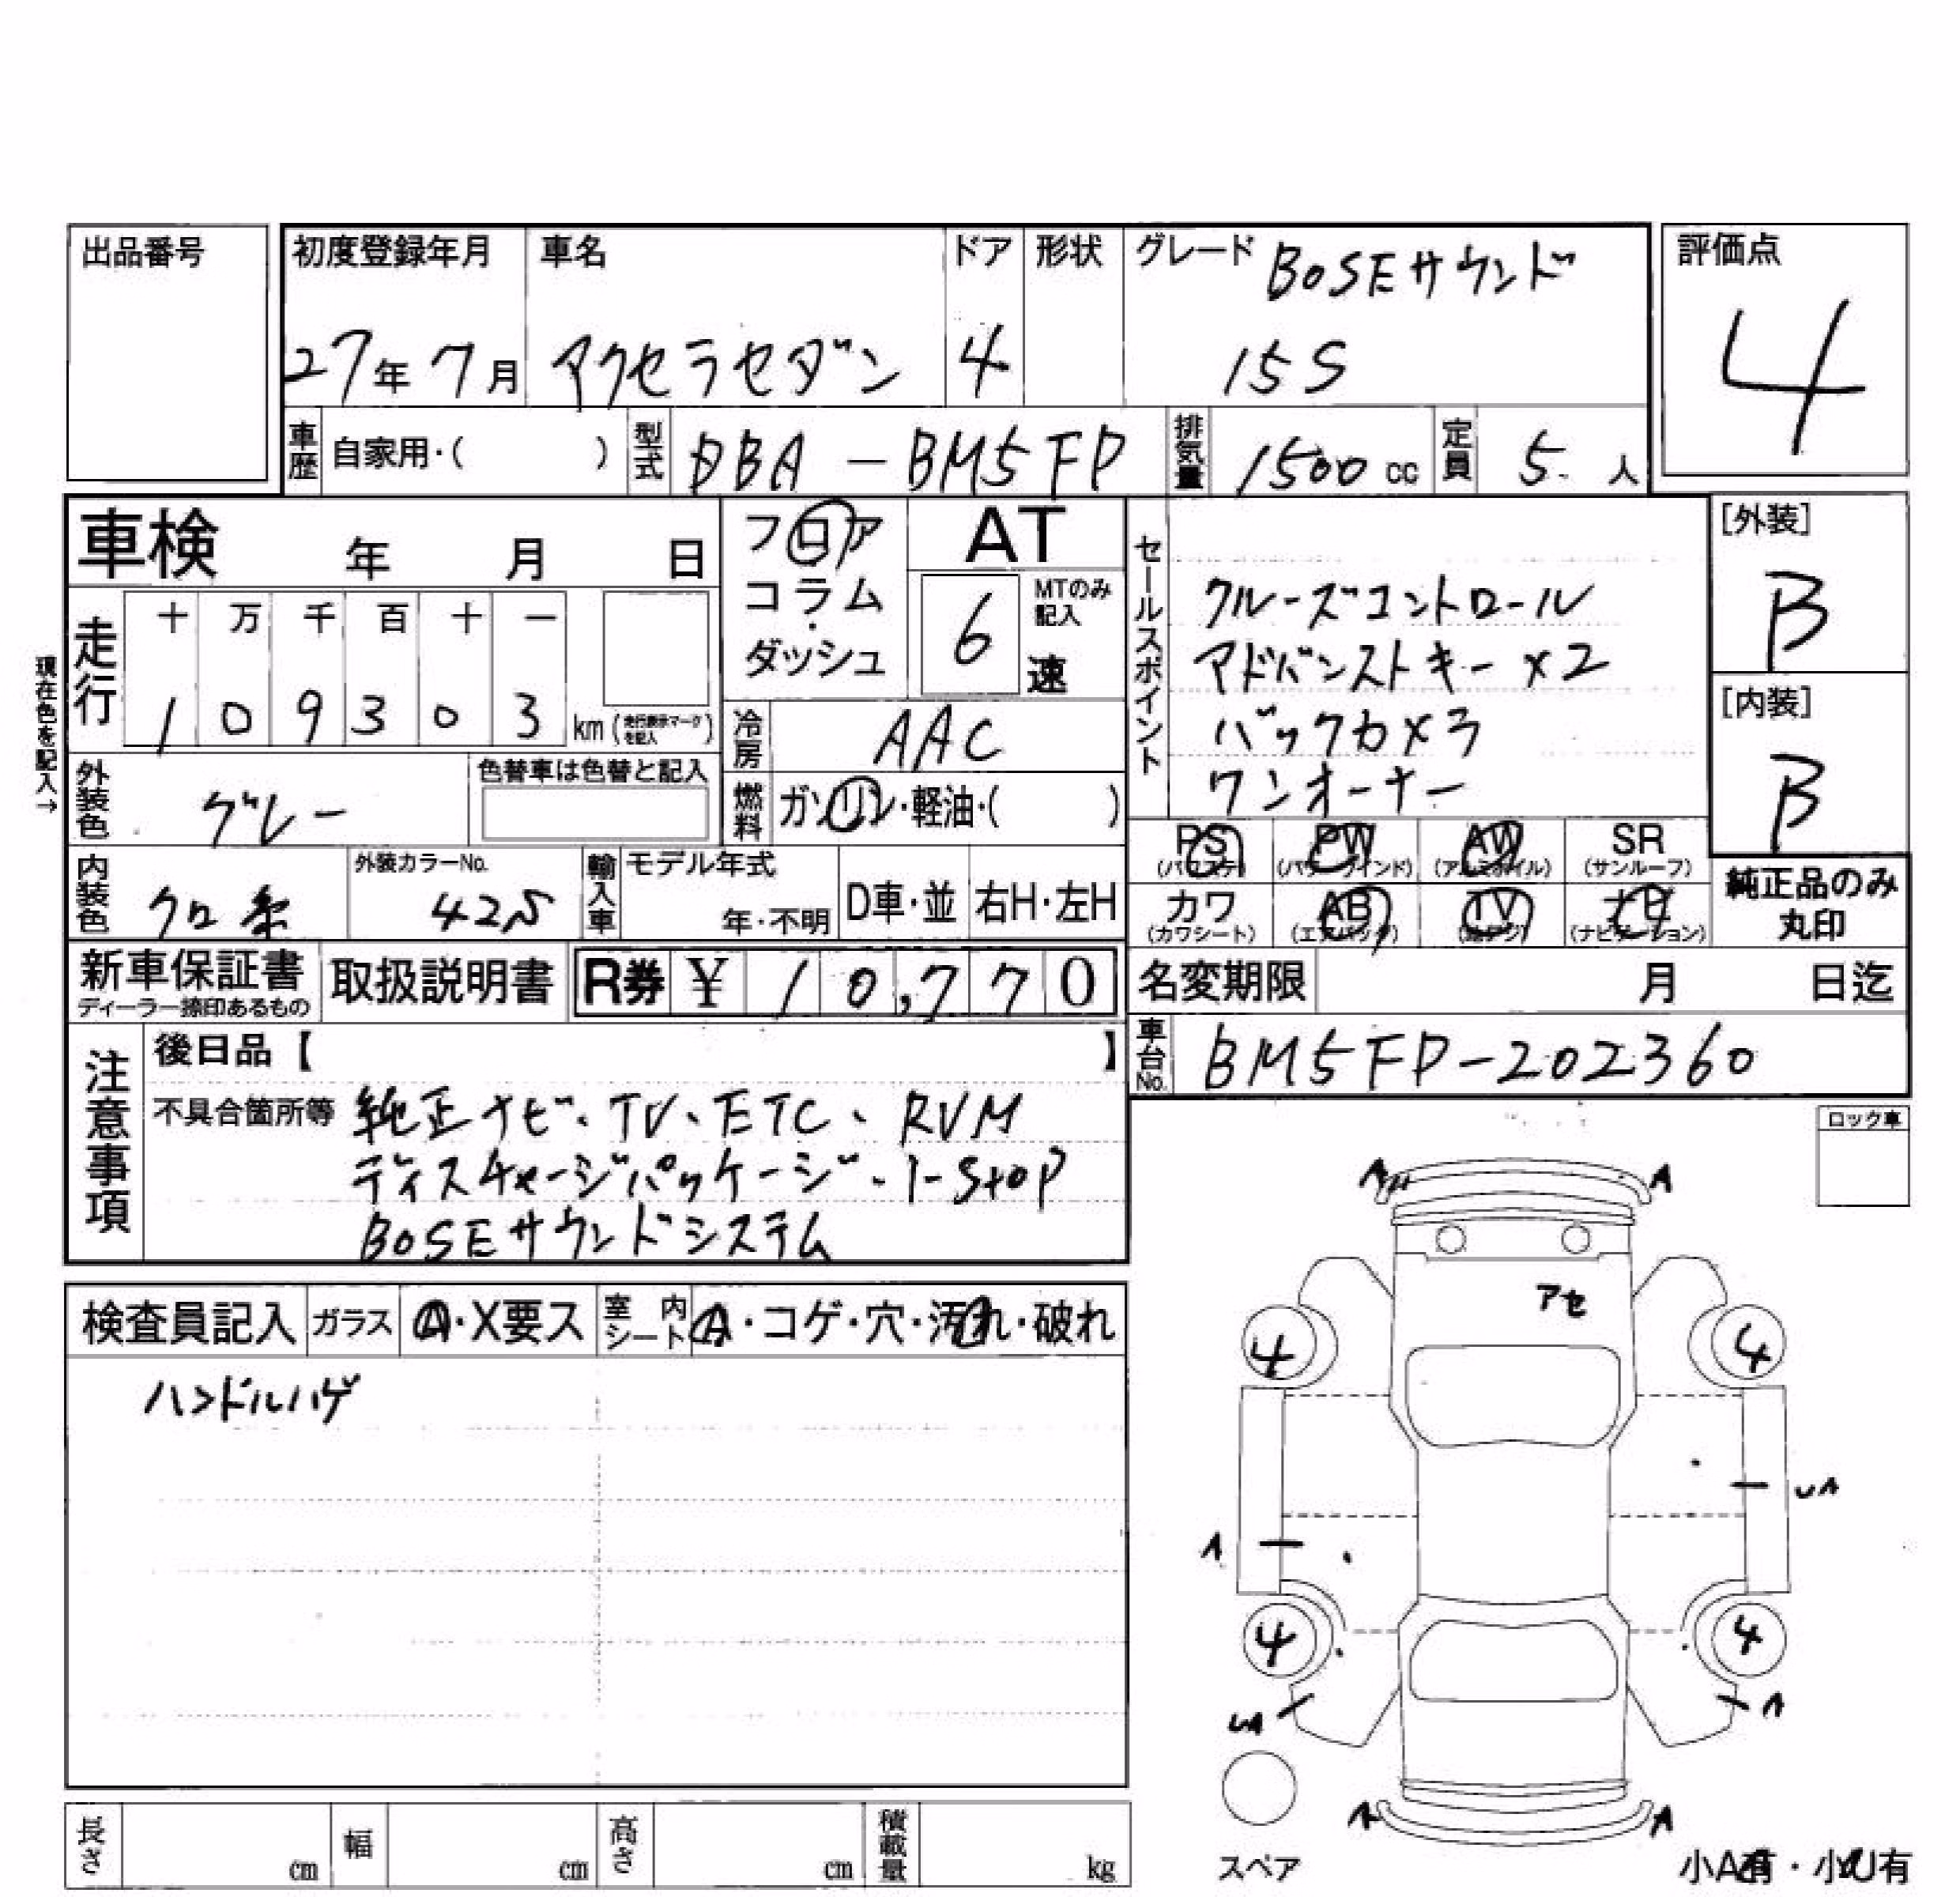 出品番号
初度登録年月 車名 ドア 形状 グレード BOSEサウンド 評価点
27年 7月 アクセラセダン 4 15S 4
車歴 自家用・( ) 型式 DBA-BM5FP 排気量 1500cc 定員 5人
車検 年 月 日
フロア コラム・ダッシュ
AT 6速 MTのみ記入
セールスポイント
クルーズコントロール
アドバンストキー×2
バックカメラ
ワンオーナー
[外装] B
[内装] B
現在色を記入→
走行 十 万 千 百 十 一
1 0 9 3 0 3 km (走行表示マークを記入)
冷房 AAC
外装色 グレー 色替車は色替と記入
燃料 ガソリン・軽油・( )
PS (パワステ) PW (パワーウインド) AW (アルミホイル) SR (サンルーフ)
カワ (カワシート) AB (エアバッグ) TV (地デジ) ナビ (ナビゲーション)
純正品のみ丸印
内装色 クロ 外装カラーNo. 42S 輸入車 モデル年式 年・不明 D車・並 右H・左H
新車保証書 ディーラー捺印あるもの 取扱説明書 R券 ¥ 10,770
名変期限 月 日迄
車台No. BM5FP-202360
注意事項
後日品【 】
不具合箇所等 純正ナビ、TV、ETC、RVM
ディスチャージパッケージ、i-stop
BOSEサウンドシステム
ロック車
検査員記入 ガラス A・X要ス 室内シート A・コゲ・穴・汚れ・破れ
ハンドルハゲ
A A
アセ
4 4
UA
A
4 4
UA A
A A
スペア
小A有・小U有
長さ cm 幅 cm 高さ cm 積載量 kg